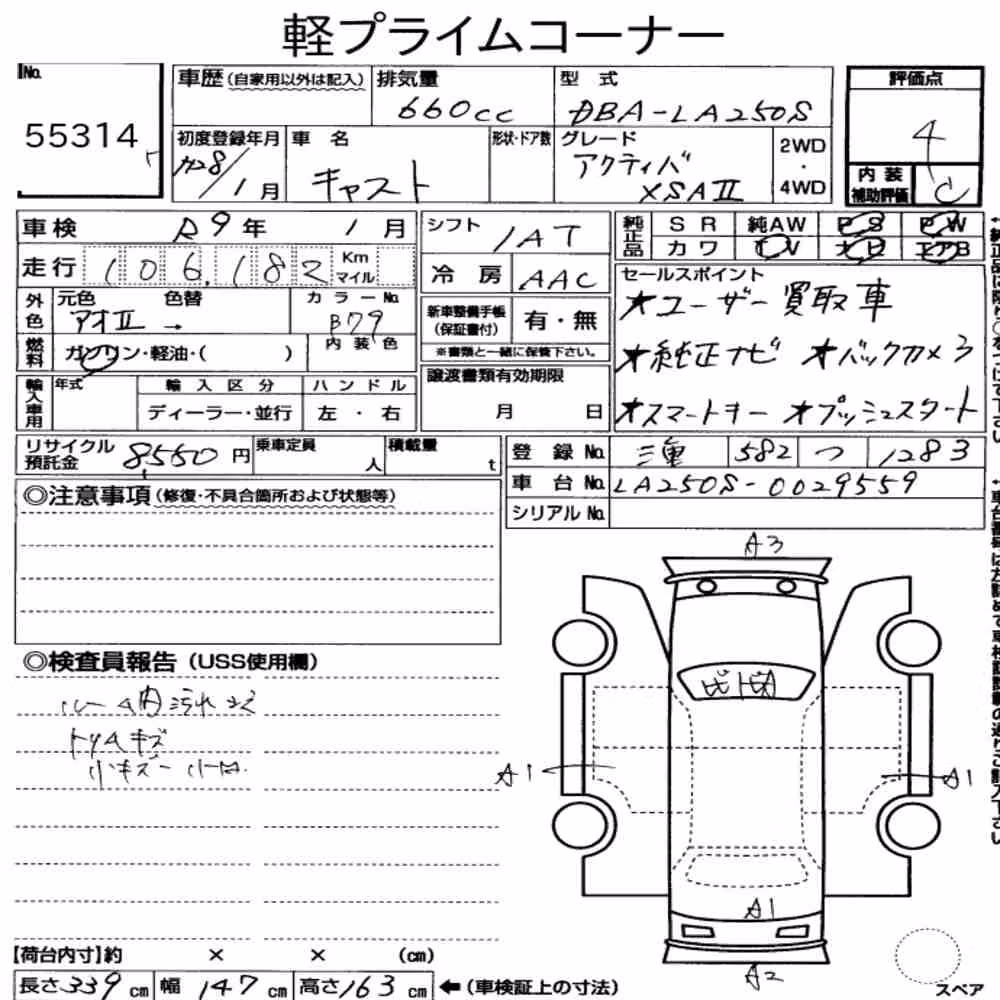 軽プライムコーナー
No.
55314
車歴 (自家用以外は記入)
排気量
660cc
型式
DBA-LA250S
評価点
4
内装
補助評価
C
初度登録年月
H28/1月
車名
キャスト
形状・ドア数
グレード
アクティバ
XSAⅡ
2WD
・
4WD
車検 R9年 1月
走行 106,182 Km マイル
シフト
1AT
冷房 AAC
純正品
SR 純AW PS PW
カワ TV ナビ エアB
セールスポイント
★ユーザー買取車
★純正ナビ ★バックカメラ
★スマートキー ★プッシュスタート
外色
元色 色替 カラーNo.
アオⅡ → B79
燃料
ガソリン・軽油・( )
内装色
新車整備手帳
(保証書付)
有・無
※書類と一緒に保管下さい。
輸入車用
年式 輸入区分 ハンドル
ディーラー・並行 左・右
譲渡書類有効期限
月 日
リサイクル
預託金
8550円
乗車定員
人
積載量
t
登録No. 三重 582 つ 1283
車台No. LA250S-0029559
シリアルNo.
◎注意事項 (修復・不具合箇所および状態等)
◎検査員報告 (USS使用欄)
ルーム内汚れ
トリムキズ
小キズ
A3
A1
A1
A1
A2
【荷台内寸】約 × × (cm)
長さ339cm 幅147cm 高さ163cm ←(車検証上の寸法)
スペア